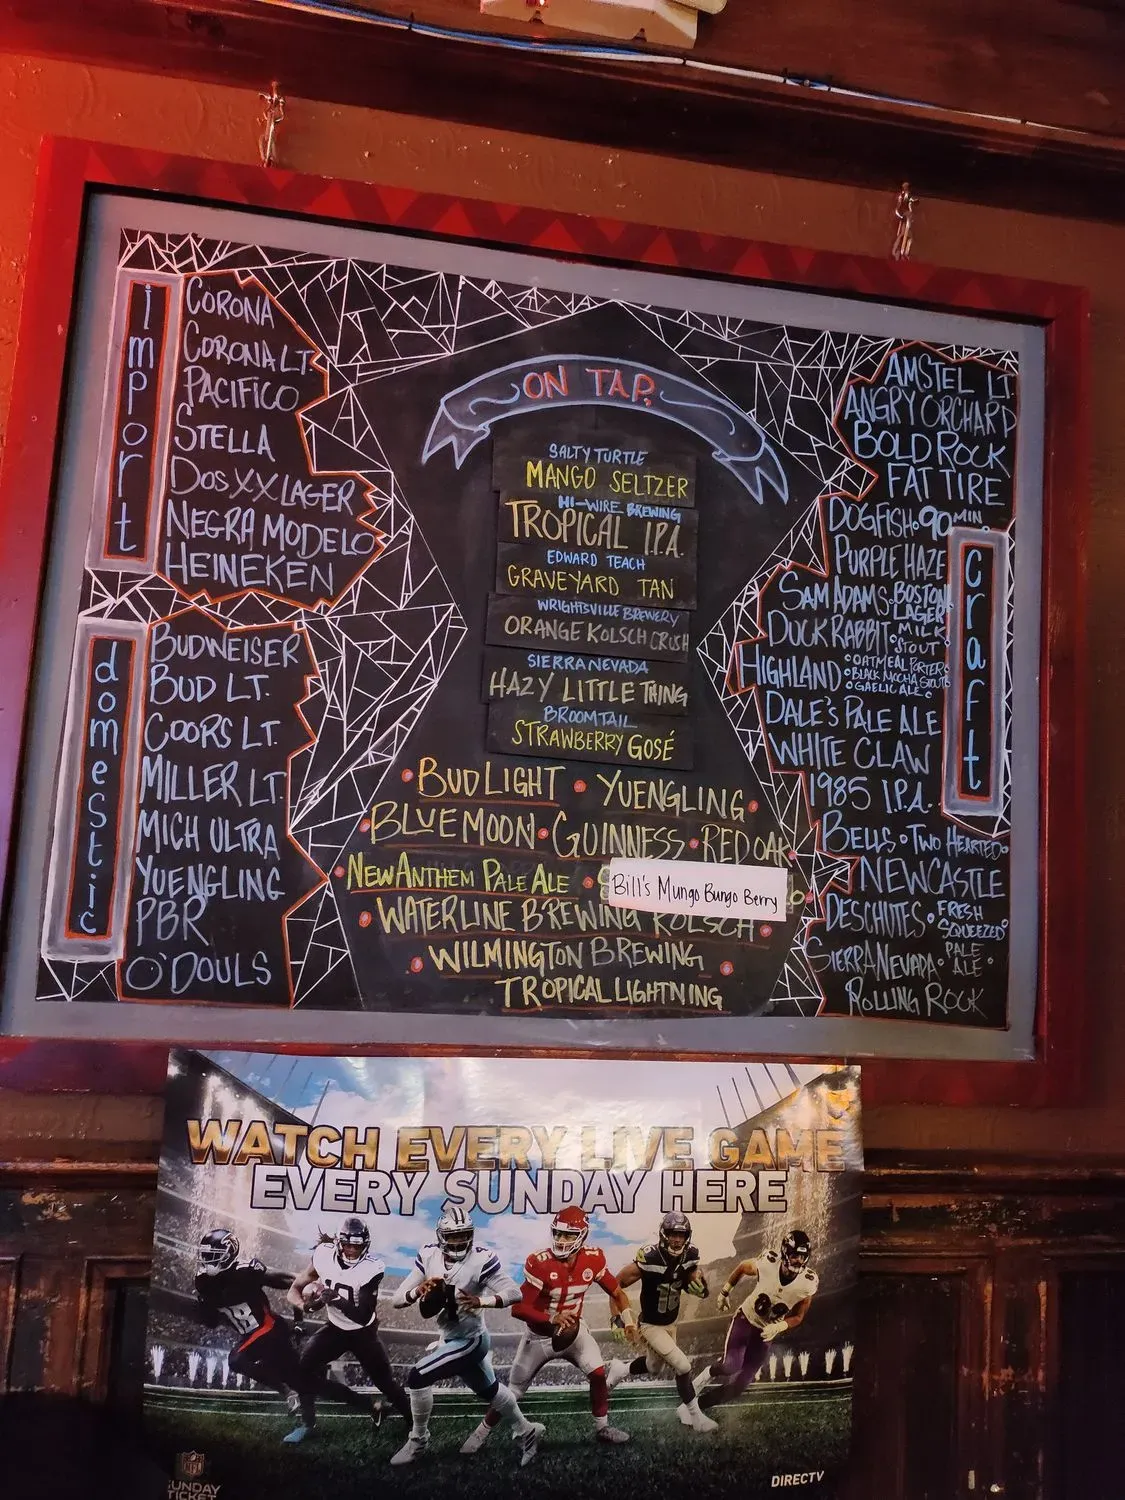 import
CORONA
CORONA LT.
PACIFICO
STELLA
DOS XX LAGER
NEGRA MODELO
HEINEKEN
domestic
BUDWEISER
BUD LT.
COORS LT.
MILLER LT.
MICH ULTRA
YUENGLING
PBR
O'DOULS
ON TAP.
SALTY TURTLE
MANGO SELTZER
HI-WIRE BREWING
TROPICAL I.P.A.
EDWARD TEACH
GRAVEYARD TAN
WRIGHTSVILLE BREWERY
ORANGE KOLSCH CRUSH
SIERRA NEVADA
HAZY LITTLE THING
BROOMTAIL
STRAWBERRY GOSÉ
BUD LIGHT • YUENGLING •
• BLUE MOON • GUINNESS • RED OAK
• NEW ANTHEM PALE ALE •
Bill's Mungo Bungo Berry
• WATERLINE BREWING KOLSCH •
• WILMINGTON BREWING •
TROPICAL LIGHTNING
craft
AMSTEL LT.
ANGRY ORCHARD
BOLD ROCK
FAT TIRE
DOGFISH • 90 MIN.
PURPLE HAZE
SAM ADAMS • BOSTON LAGER
DUCK RABBIT • MILK STOUT •
HIGHLAND • OATMEAL PORTER •
• BLACK MOCHA STOUT •
• GAELIC ALE •
DALE'S PALE ALE
WHITE CLAW
1985 I.P.A.
BELLS • TWO HEARTED •
NEWCASTLE
DESCHUTES • FRESH SQUEEZED •
SIERRA NEVADA • PALE ALE •
ROLLING ROCK
WATCH EVERY LIVE GAME
EVERY SUNDAY HERE
18
10
4
15
16
89
NFL
SUNDAY
TICKET
DIRECTV